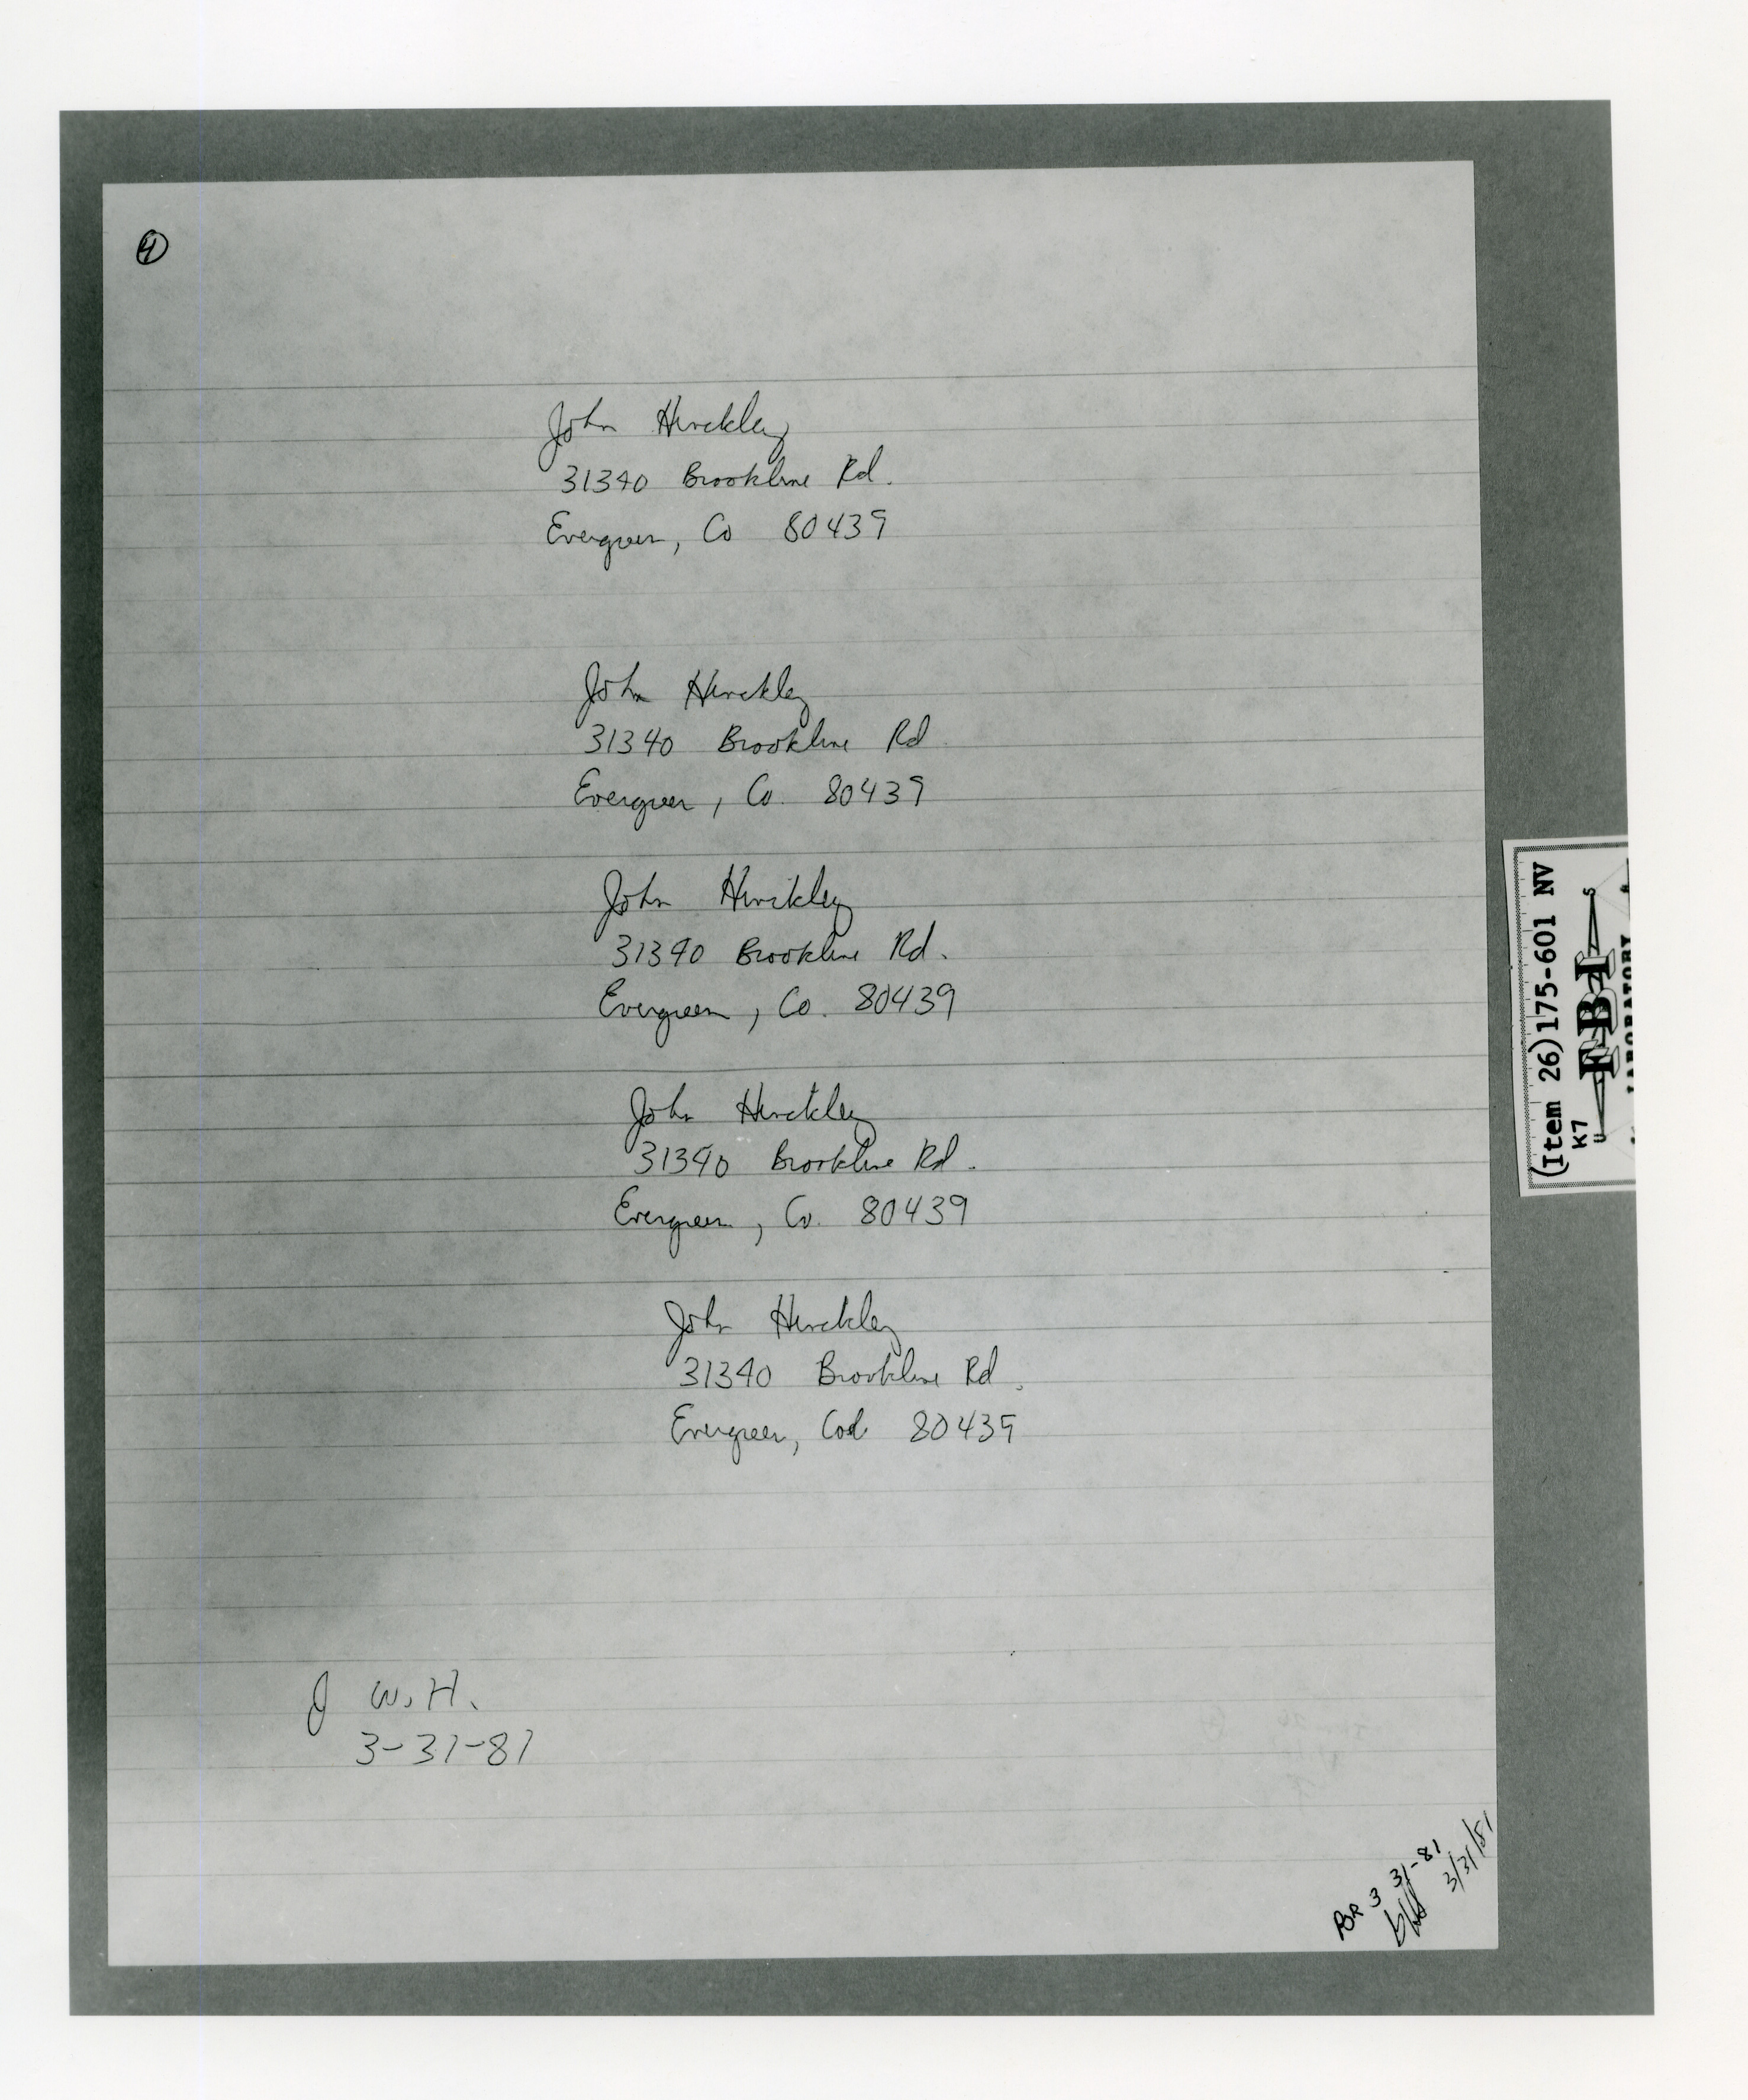 4
John Hinckley
31340 Brookline Rd.
Evergreen, Co 80439
John Hinckley
31340 Brookline Rd
Evergreen, Co. 80439
John Hinckley
31340 Brookline Rd.
Evergreen, Co. 80439
John Hinckley
31340 Brookline Rd.
Evergreen, Co. 80439
John Hinckley
31340 Brookline Rd.
Evergreen, Col. 80439
J W. H.
3-31-81
BR 3 31-81
3/31/81
(Item 26)175-601 NV
K7
U S
FBI
LABORATORY